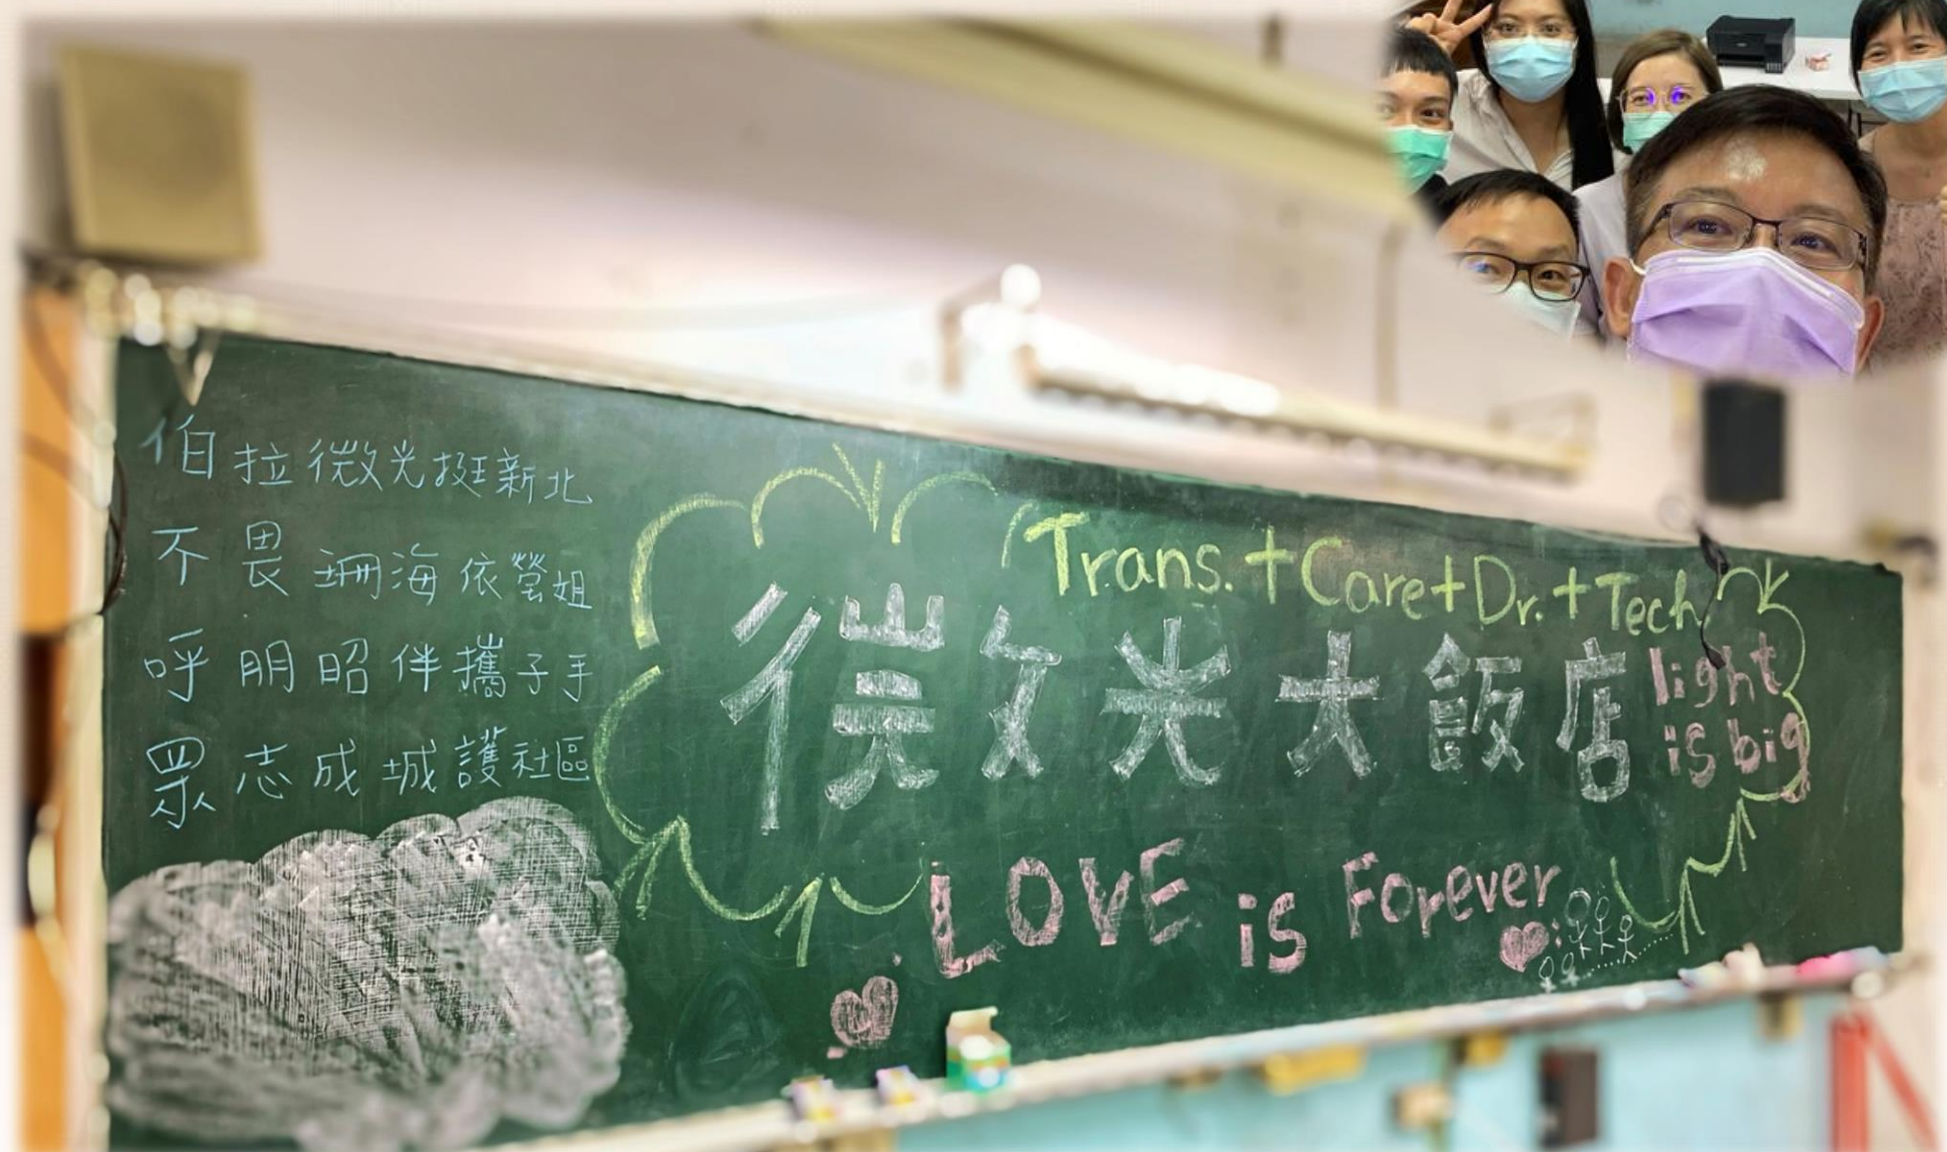 伯拉微光挺新北
不畏珊海依螢姐
呼朋昭伴攜子手
眾志成城護社區
Trans.+Care+Dr.+Tech
微光大飯店
light
is big
LOVE is Forever